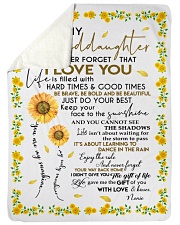 MY
Granddaughter
NEVER FORGET THAT
I LOVE YOU
Life is filled with
HARD TIMES & GOOD TIMES
BE BRAVE, BE BOLD AND BEAUTIFUL
JUST DO YOUR BEST
Keep your
face to the sunshine
AND YOU CANNOT SEE
THE SHADOWS
Life isn't about waiting for
the storm to pass
IT'S ABOUT LEARNING TO
DANCE IN THE RAIN
Enjoy the ride
And never forget
YOUR WAY BACK HOME
I DIDN'T GIVE YOU The gift of life
Life gave me the GIFT OF you
WITH LOVE & kisses
Nana
You are my sunshine